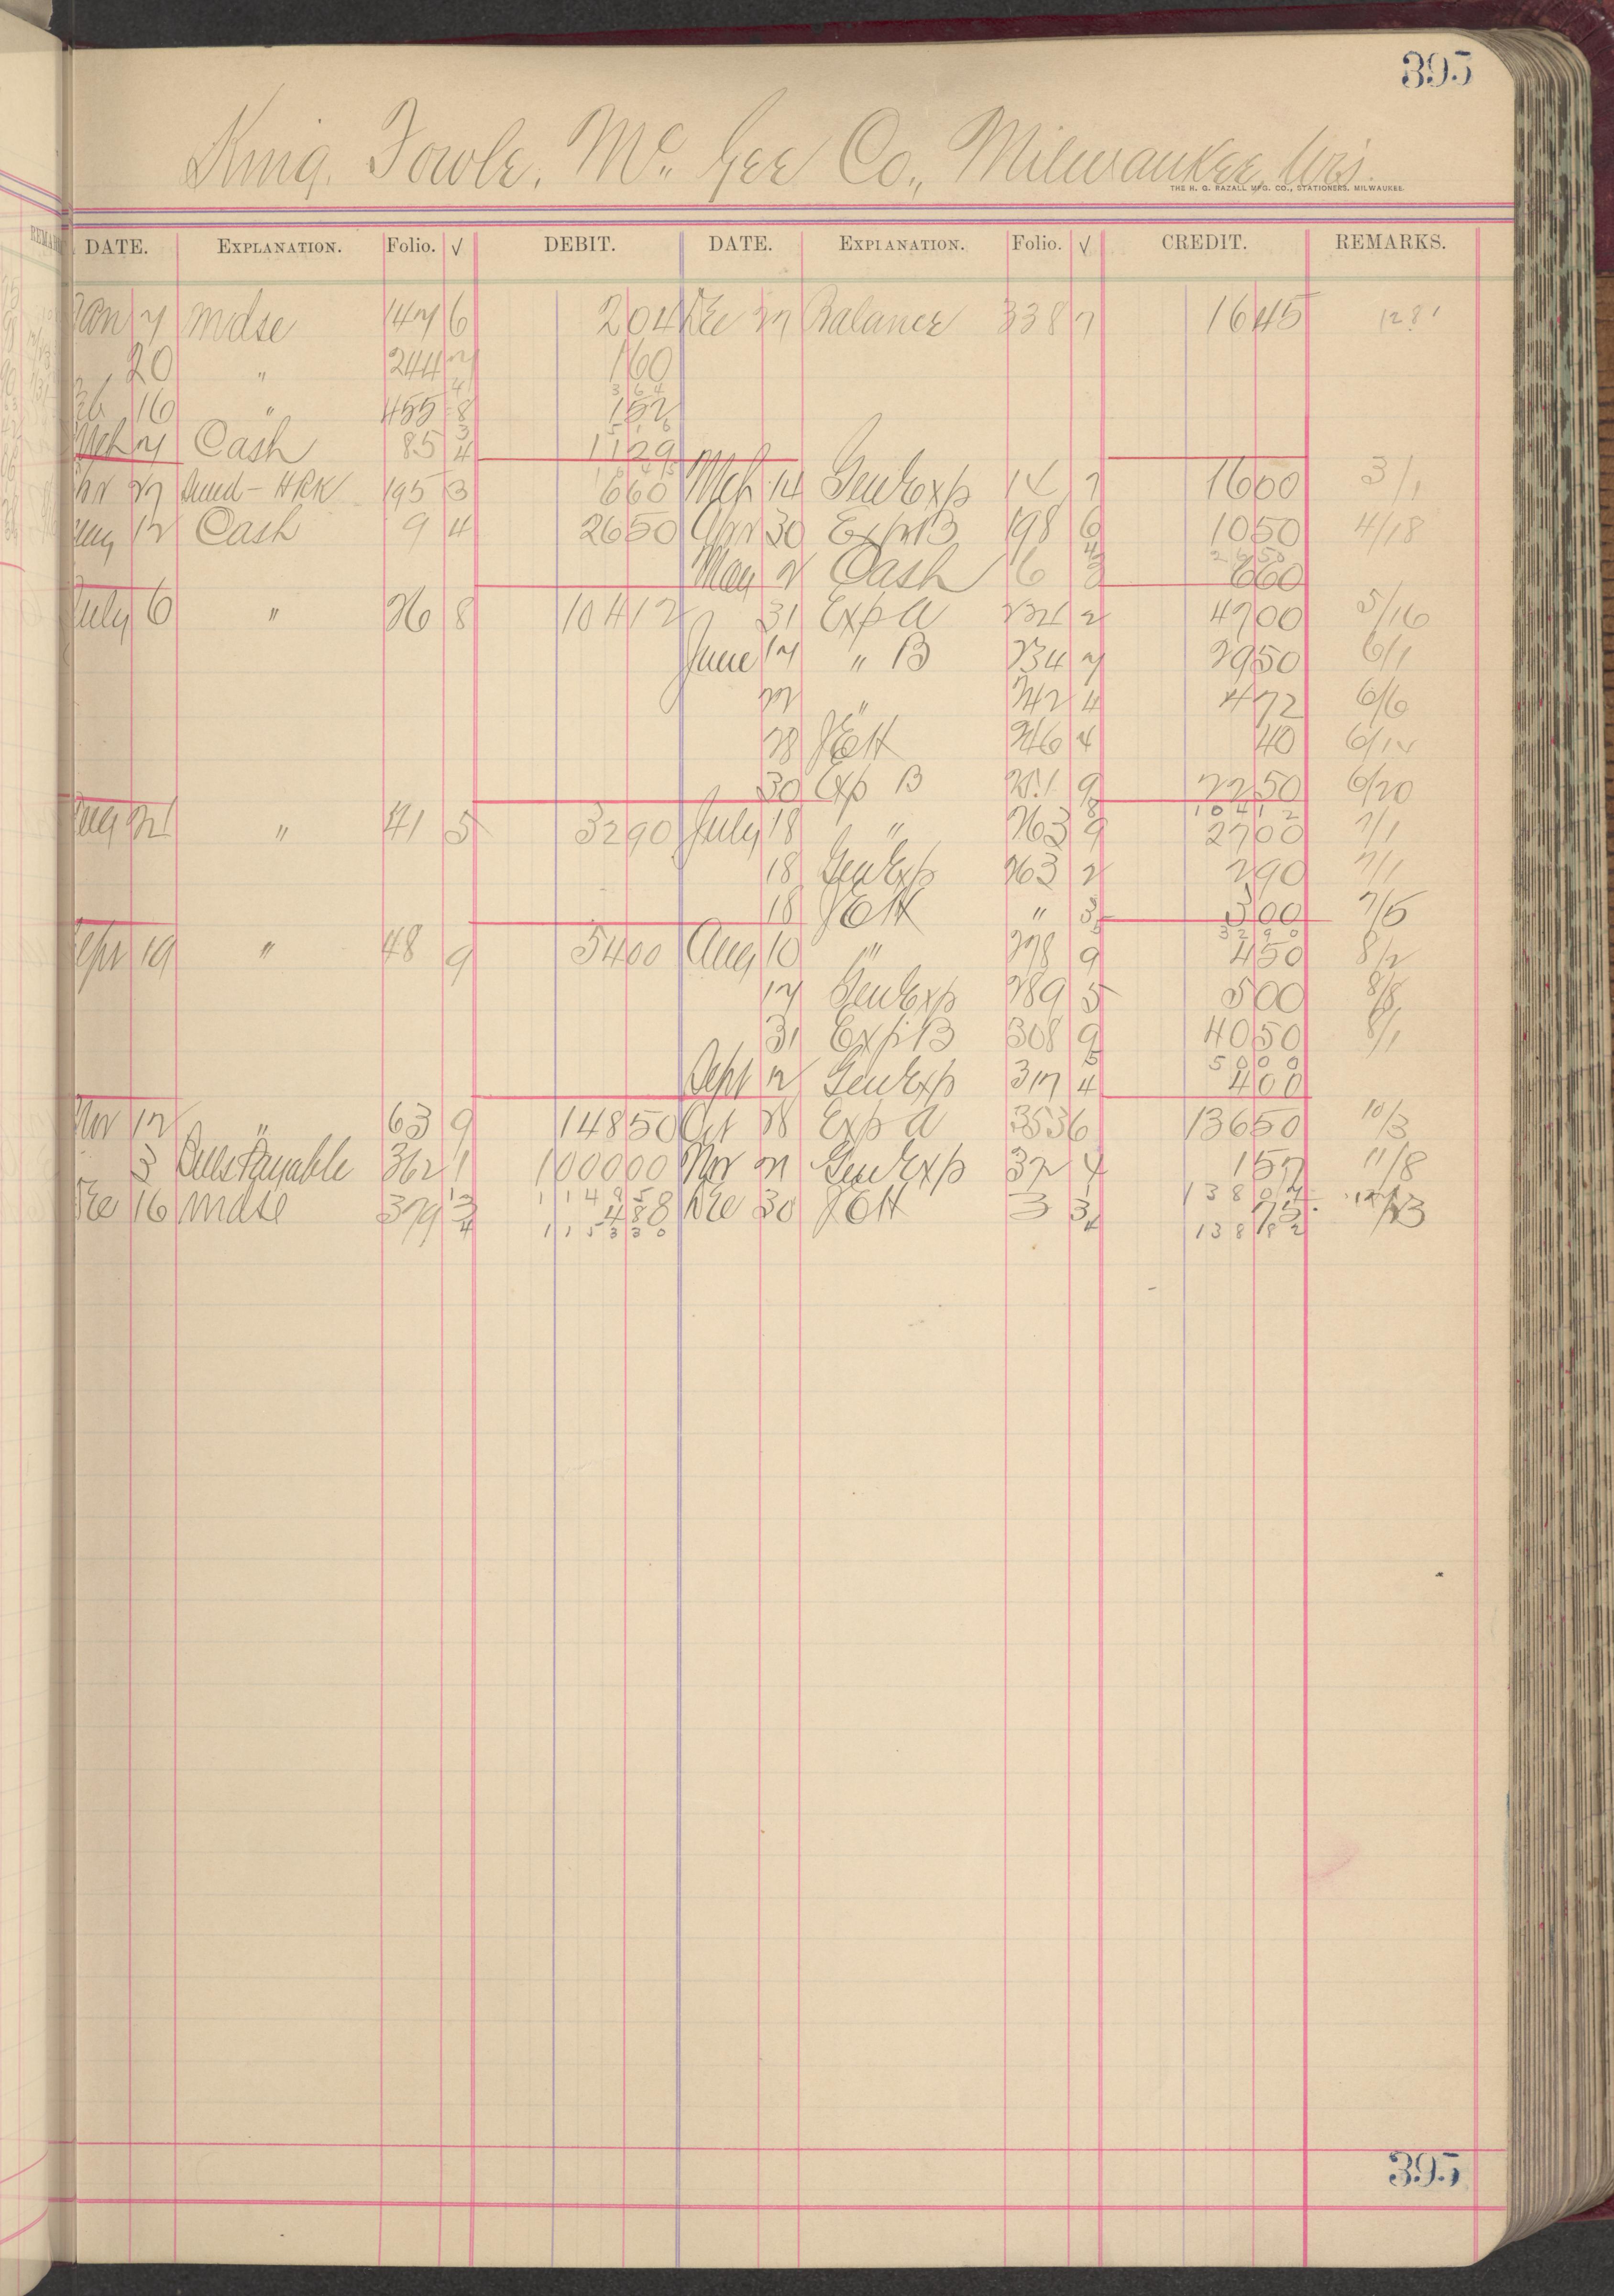 395
King, Fowle, Mc Gee Co., Milwaukee, Wis.
THE H. G. RAZALL MFG. CO., STATIONERS, MILWAUKEE.
DATE. EXPLANATION. Folio. √ DEBIT. DATE. EXPLANATION. Folio. √ CREDIT. REMARKS.
Jan 7 Mdse 147 6 204 Dec 27 Balance 338 7 1645
20 " 244 7 160
3 6 4
16 " 455 8 152
5 1 6
Mch 7 Cash 85 4 1129
27 195 3 660 Mch 14 Gen Exp 14 7 1600 3/1
May 12 Cash 9 4 2650 Apr 30 Exp B 198 6 1050 4/18
2 6 50
May 2 Cash 6 3 660
July 6 " 26 8 10412 31 Exp A 2 4700 5/16
June 17 " B 234 7 2950 6/1
22 " 242 4 472 6/6
28 JEH 246 4 40 6/14
30 Exp B 251 9 2250 6/20
1 0 4 1 2
Aug 21 " 41 5 3290 July 18 " 263 9 2700 7/1
18 Gen Exp 263 2 290 7/1
18 JEH " 3 300 7/5
3 2 9 0
Sept 19 " 48 9 5400 Aug 10 " 278 9 450 8/2
17 Gen Exp 289 5 500 8/8
31 Exp B 308 9 4050 8/1
5 0 0 0
Sept 12 Gen Exp 317 4 400
Nov 12 " 63 9 14850 Oct 28 Exp A 353 6 13650 10/3
3 Bills Payable 362 1 100000 Nov 21 Gen Exp 372 4 157 11/8
1 1 4 8 5 8 1 3 8 0 7
Dec 16 Mdse 379 3 488 Dec 30 JEH 3 3 75
1 1 5 3 3 8 1 3 8 8 2
395